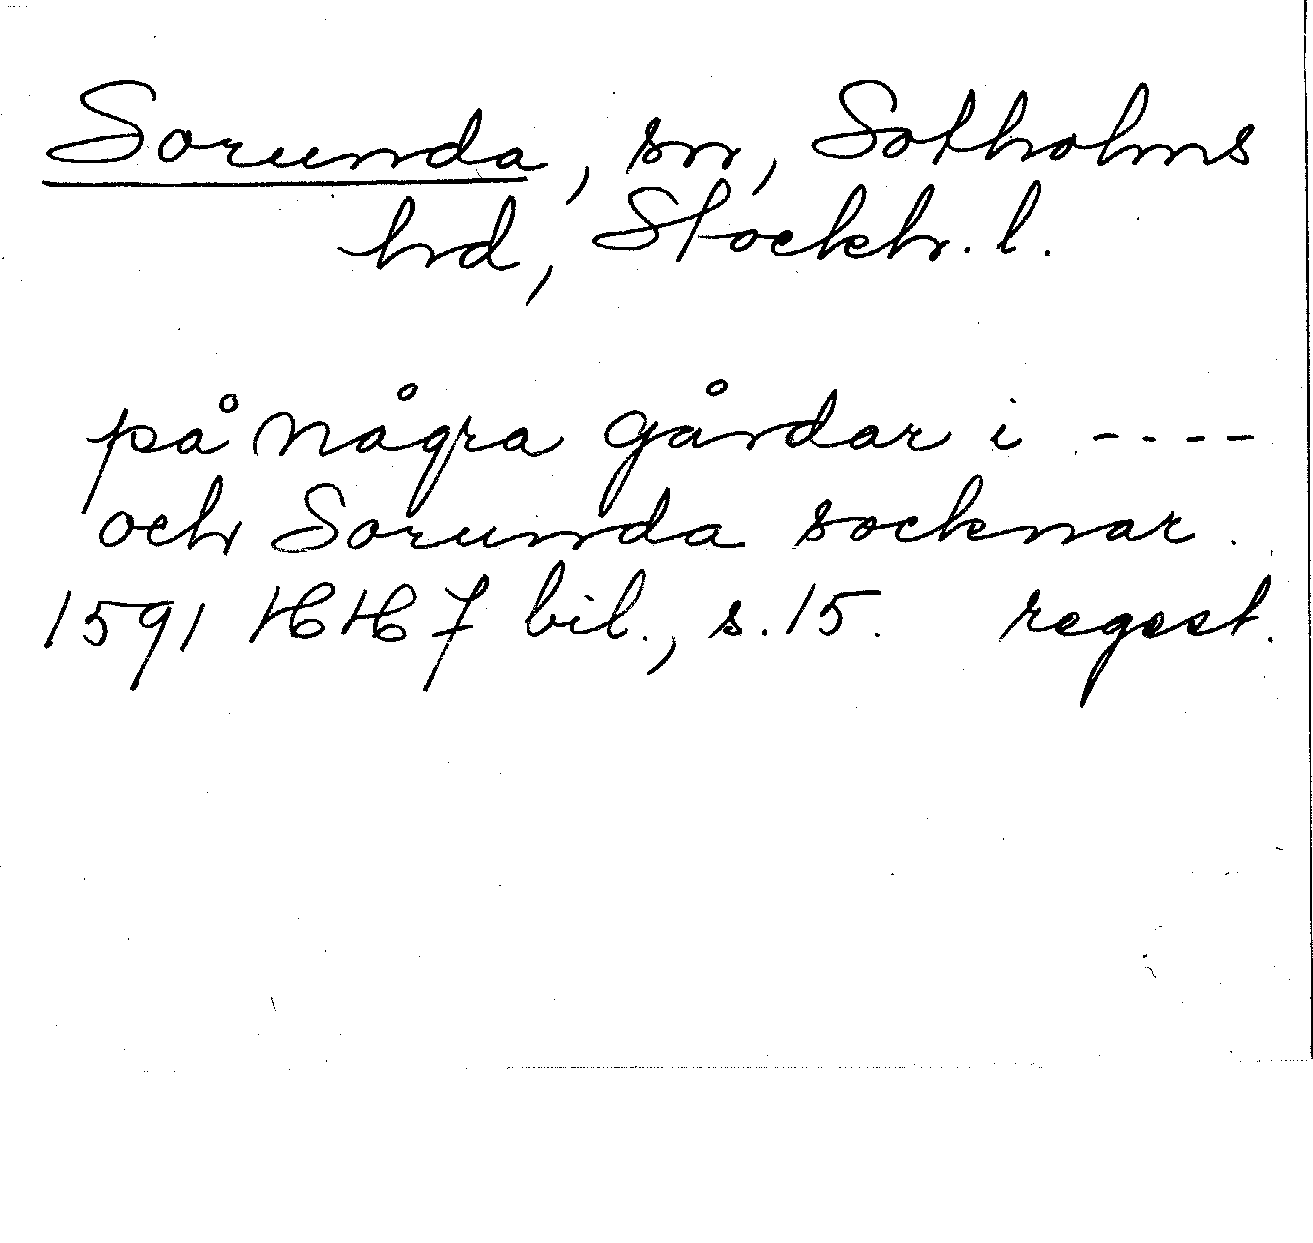 Sorunda, sn, Sotholms
hd, Stockh. l.
på några gårdar i ----
och Sorunda socknar.
1591 HH 7 bil., s. 15. regest.